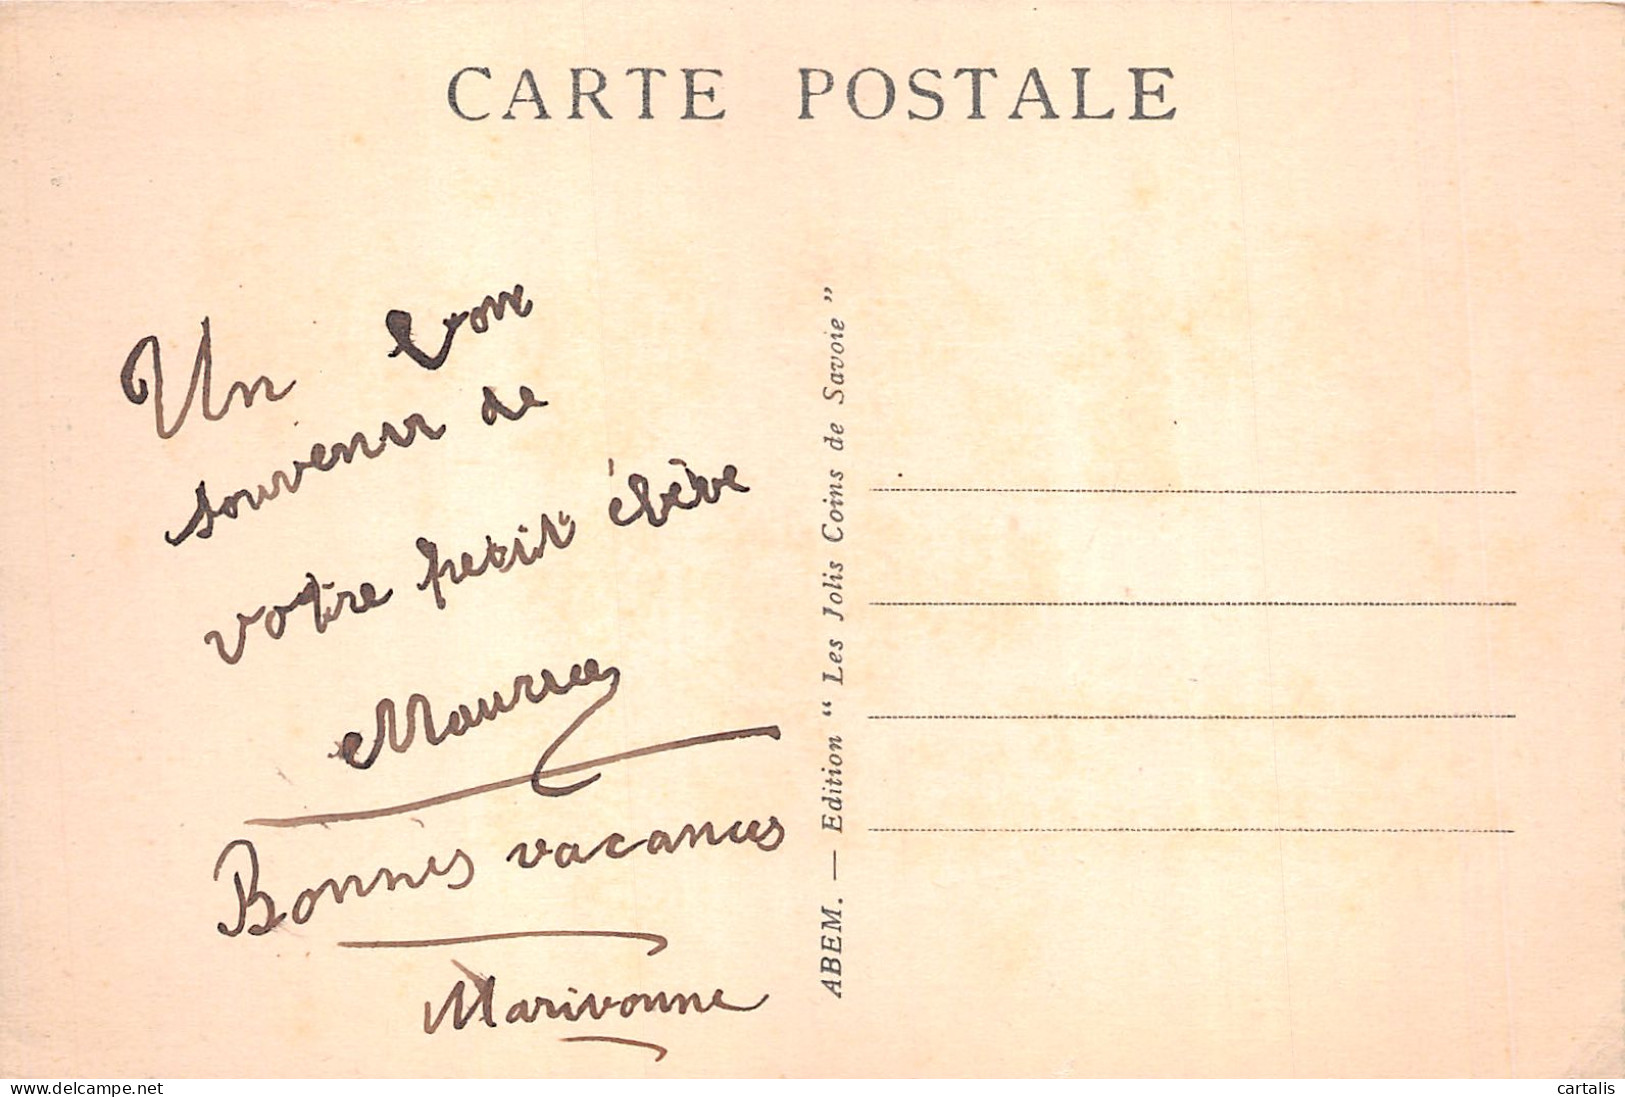 CARTE POSTALE
Un bon
souvenir de
votre petit élève
Maurice
Bonnes vacances
Marivonne
ABEM. — Edition “ Les Jolis Coins de Savoie ”
www.delcampe.net
cartalis